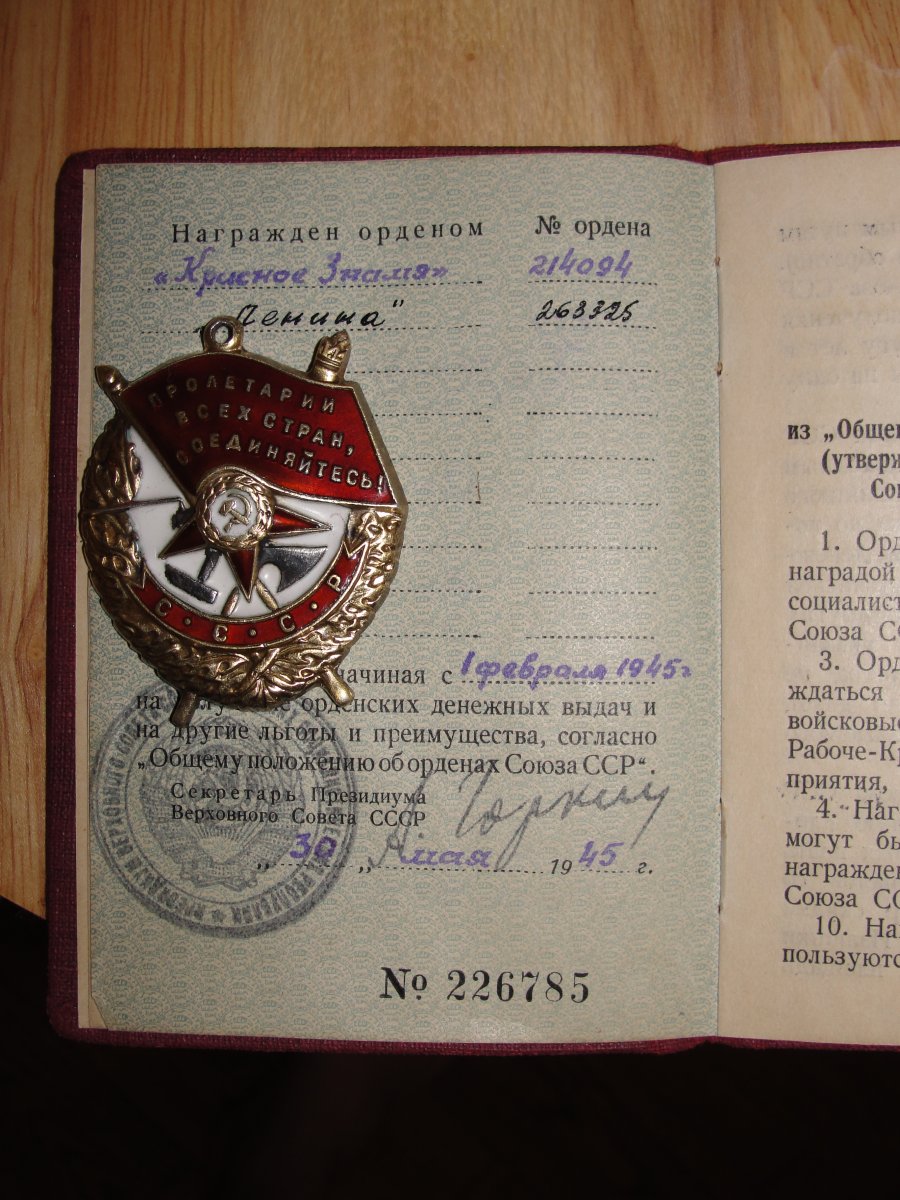 Награжден орденом № ордена
„Красное Знамя" 214094
„Ленина" 263325
ПРОЛЕТАРИИ
ВСЕХ СТРАН,
СОЕДИНЯЙТЕСЬ!
С·С·С·Р
начиная с 1 февраля 1945 г
на орденских денежных выдач и
на другие льготы и преимущества, согласно
„Общему положению об орденах Союза ССР".
Секретарь Президиума
Верховного Совета СССР
„30„ мая 1945 г.
№ 226785
из „Общег
(утверж
Сою
1. Орд
наградой
социалист
Союза СС
3. Орд
ждаться
войсковые
Рабоче-Кр
приятия,
4. Наг
могут бы
награжден
Союза СС
10. На
пользуютс